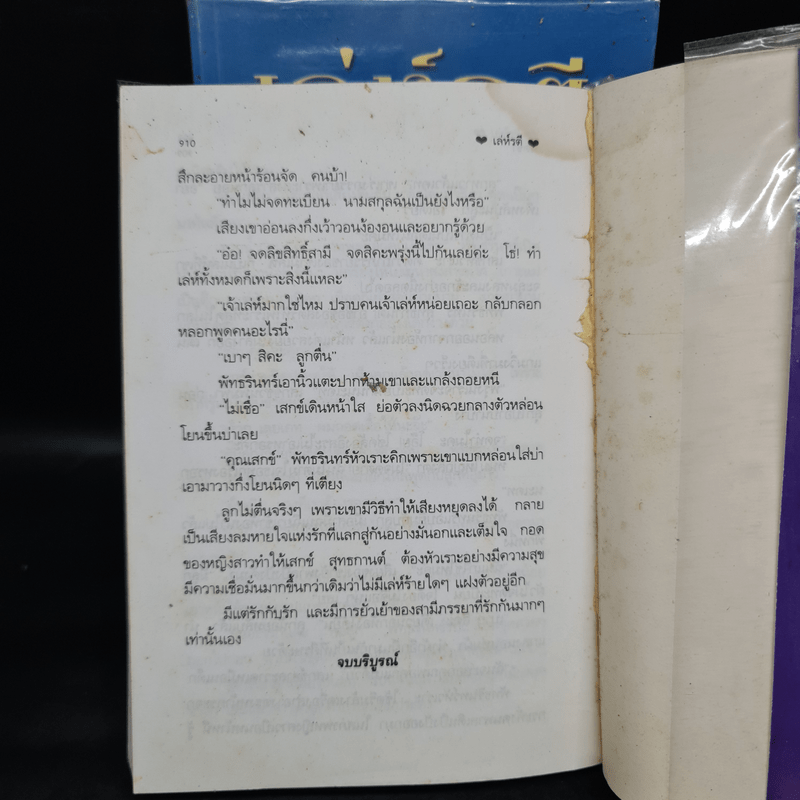 เล่ห์รตี
๙๑๐
❤ เล่ห์รตี ❤
สึกละอายหน้าร้อนจัด คนบ้า!
“ทำไมไม่จดทะเบียน นามสกุลฉันเป็นยังไงหรือ”
เสียงเขาอ่อนลงกึ่งเว้าวอนง้องอนและอยากรู้ด้วย
“อ๋อ! จดลิขสิทธิ์สามี จดสิคะพรุ่งนี้ไปกันเลยค่ะ โธ่! ทำ
เล่ห์ทั้งหมดก็เพราะสิ่งนี้แหละ”
“เจ้าเล่ห์มากใช่ไหม ปราบคนเจ้าเล่ห์หน่อยเถอะ กลับกลอก
หลอกพูดคนอะไรนี่”
“เบาๆ สิคะ ลูกตื่น”
พัทธรินทร์เอานิ้วแตะปากห้ามเขาและแกล้งถอยหนี
“ไม่เชื่อ” เสกข์เดินหน้าใส ย่อตัวลงนิดฉวยกลางตัวหล่อน
โยนขึ้นบ่าเลย
“คุณเสกข์” พัทธรินทร์หัวเราะคิกเพราะเขาแบกหล่อนใส่บ่า
เอามาวางกึ่งโยนนิดๆ ที่เตียง
ลูกไม่ตื่นจริงๆ เพราะเขามีวิธีทำให้เสียงหยุดลงได้ กลาย
เป็นเสียงลมหายใจแห่งรักที่แลกสู่กันอย่างมั่นอกและเต็มใจ กอด
ของหญิงสาวทำให้เสกข์ สุทธกานต์ ต้องหัวเราะอย่างมีความสุข
มีความเชื่อมั่นมากขึ้นกว่าเดิมว่าไม่มีเล่ห์ร้ายใดๆ แฝงตัวอยู่อีก
มีแต่รักกับรัก และมีการยั่วเย้าของสามีภรรยาที่รักกันมากๆ
เท่านั้นเอง
จบบริบูรณ์